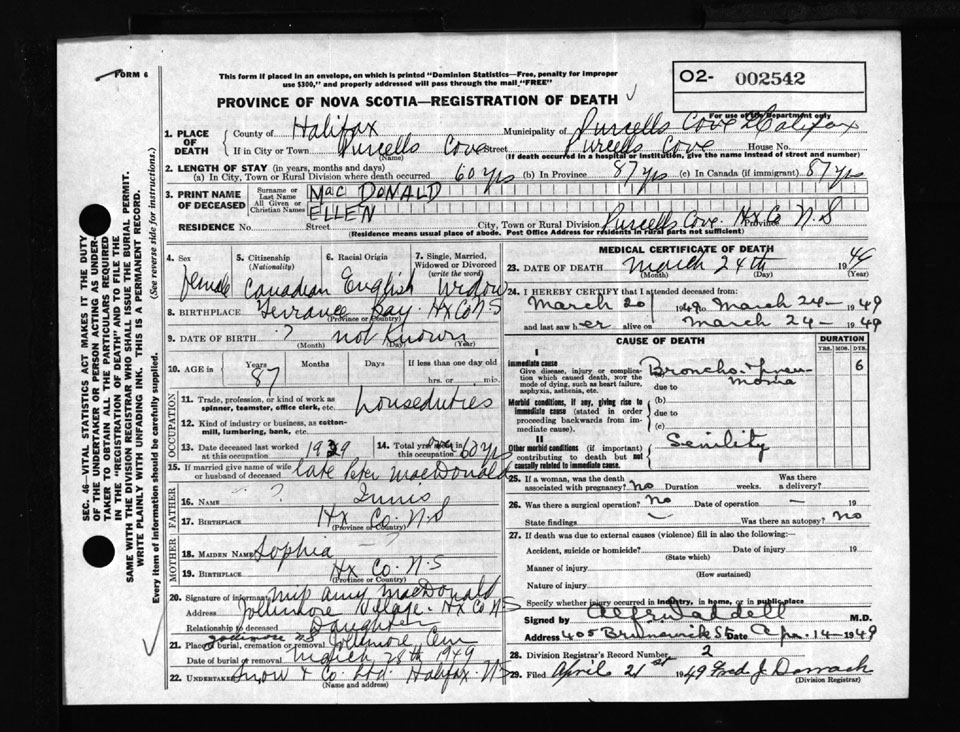 FORM 6
This form if placed in an envelope, on which is printed "Dominion Statistics—Free, penalty for improper
use $300," and properly addressed will pass through the mail "FREE"
O2- 002542
For use of the Department only
PROVINCE OF NOVA SCOTIA—REGISTRATION OF DEATH
1. PLACE OF DEATH
County of Halifax Municipality of Purcells Cove Halifax
If in City or Town Purcells Cove Street Purcells Cove House No.
(Name) (If death occurred in a hospital or institution, give the name instead of street and number)
2. LENGTH OF STAY (in years, months and days)
(a) In City, Town or Rural Division where death occurred 60 yrs (b) In Province 87 yrs (c) In Canada (if immigrant) 87 yrs
3. PRINT NAME OF DECEASED
Surname or Last Name MacDONALD
All Given or Christian Names ELLEN
RESIDENCE No. Street City, Town or Rural Division Purcells Cove Hx Co Province N.S
(Residence means usual place of abode. Post Office Address for residents in rural parts not sufficient)
4. Sex Female
5. Citizenship (Nationality) Canadian
6. Racial Origin English
7. Single, Married, Widowed or Divorced (write the word) Widow
8. BIRTHPLACE Terrance Bay Hx Co N S
(Province or Country)
9. DATE OF BIRTH ? not Known
(Month) (Day) (Year)
10. AGE in Years 87 Months Days If less than one day old
hrs. or min.
OCCUPATION
11. Trade, profession, or kind of work as spinner, teamster, office clerk, etc. houseduties
12. Kind of industry or business, as cotton-mill, lumbering, bank, etc.
13. Date deceased last worked at this occupation 1939
14. Total years in this occupation 60 yrs
15. If married give name of wife or husband of deceased late Peter MacDonald
FATHER
16. NAME ? Innis
17. BIRTHPLACE Hx Co. N.S
(Province or Country)
MOTHER
18. MAIDEN NAME Sophia — ?
19. BIRTHPLACE Hx Co. N.S
(Province or Country)
20. Signature of informant Amy MacDonald
Address Jollimore Village. Hx Co N S
Relationship to deceased Daughter
21. Place of burial, cremation or removal Jollimore N.S Jollimore Cem
Date of burial or removal March 28th 1949
22. UNDERTAKER Snow & Co. Ltd. Halifax NS
(Name and address)
MEDICAL CERTIFICATE OF DEATH
23. DATE OF DEATH March 24th 1949
(Month) (Day) (Year)
24. I HEREBY CERTIFY that I attended deceased from:
March 20 1949 to March 24- 1949
and last saw her alive on March 24- 1949
CAUSE OF DEATH DURATION
YRS. MOS. DYS.
I
Immediate cause
Give disease, injury or complication which caused death, not the mode of dying, such as heart failure, asphyxia, asthenia, etc.
Broncho-pneumonia 6
due to
(b)
Morbid conditions, if any, giving rise to immediate cause (stated in order proceeding backwards from immediate cause).
due to
(c)
II
Other morbid conditions (if important) contributing to death but not causally related to immediate cause.
Senility
25. If a woman, was the death associated with pregnancy? No Duration weeks. Was there a delivery?
26. Was there a surgical operation? No Date of operation — 19
State findings — Was there an autopsy? No
27. If death was due to external causes (violence) fill in also the following:—
Accident, suicide or homicide? Date of injury 19
(State which)
Manner of injury
(How sustained)
Nature of injury
Specify whether injury occurred in industry, in home, or in public place
Signed by M.D.
Address 405 Brunswick St Date Apr. 14- 1949
28. Division Registrar's Record Number 2
29. Filed April 21st 1949 Fred J Darrach
(Division Registrar)
SEC. 46—VITAL STATISTICS ACT MAKES IT THE DUTY
OF THE UNDERTAKER OR PERSON ACTING AS UNDERTAKER TO OBTAIN ALL THE PARTICULARS REQUIRED
IN THE "REGISTRATION OF DEATH" AND TO FILE THE
SAME WITH THE DIVISION REGISTRAR WHO SHALL ISSUE THE BURIAL PERMIT.
WRITE PLAINLY WITH UNFADING INK. THIS IS A PERMANENT RECORD.
Every item of information should be carefully supplied. (See reverse side for instructions.)